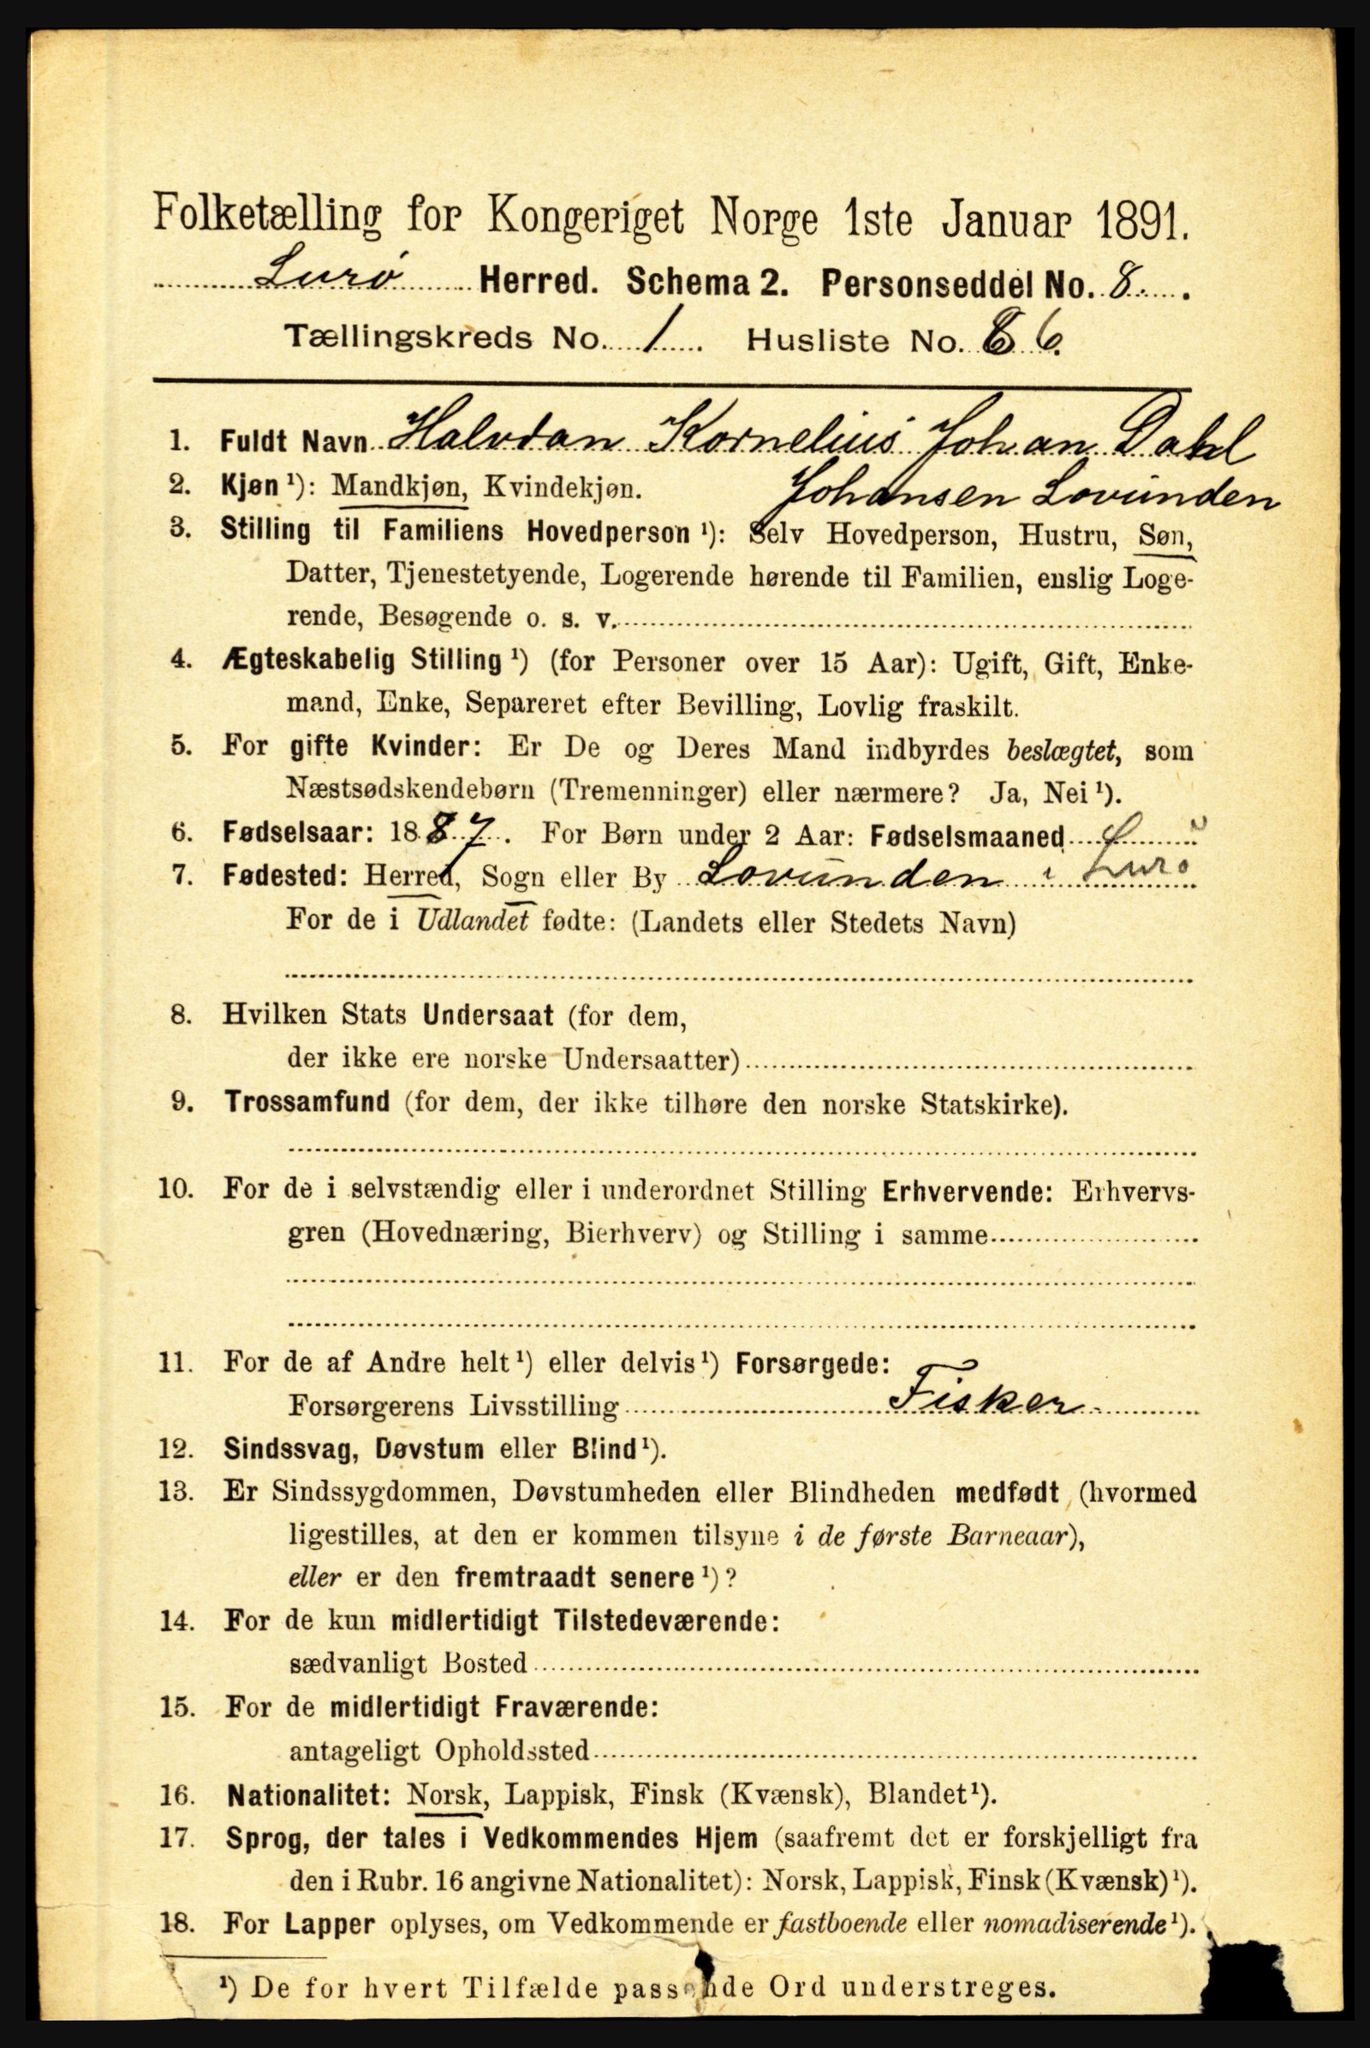 Folketælling for Kongeriget Norge 1ste Januar 1891.
Lurø Herred. Schema 2. Personseddel No. 8.
Tællingskreds No. 1. Husliste No. 6.
1. Fuldt Navn Halvdan Kornelius Johan Dahl
Johansen Lovunden
2. Kjøn ¹): Mandkjøn, Kvindekjøn.
3. Stilling til Familiens Hovedperson ¹): Selv Hovedperson, Hustru, Søn,
Datter, Tjenestetyende, Logerende hørende til Familien, enslig Loge-
rende, Besøgende o. s. v.
4. Ægteskabelig Stilling ¹) (for Personer over 15 Aar): Ugift, Gift, Enke-
mand, Enke, Separeret efter Bevilling, Lovlig fraskilt.
5. For gifte Kvinder: Er De og Deres Mand indbyrdes beslægtet, som
Næstsødskendebørn (Tremenninger) eller nærmere? Ja, Nei ¹).
6. Fødselsaar: 1887. For Børn under 2 Aar: Fødselsmaaned
7. Fødested: Herred, Sogn eller By Lovunden i Lurø
For de i Udlandet fødte: (Landets eller Stedets Navn)
8. Hvilken Stats Undersaat (for dem,
der ikke ere norske Undersaatter)
9. Trossamfund (for dem, der ikke tilhøre den norske Statskirke).
10. For de i selvstændig eller i underordnet Stilling Erhvervende: Erhvervs-
gren (Hovednæring, Bierhverv) og Stilling i samme
11. For de af Andre helt ¹) eller delvis ¹) Forsørgede:
Forsørgerens Livsstilling Fisker
12. Sindssvag, Døvstum eller Blind ¹).
13. Er Sindssygdommen, Døvstumheden eller Blindheden medfødt (hvormed
ligestilles, at den er kommen tilsyne i de første Barneaar),
eller er den fremtraadt senere ¹)?
14. For de kun midlertidigt Tilstedeværende:
sædvanligt Bosted
15. For de midlertidigt Fraværende:
antageligt Opholdssted
16. Nationalitet: Norsk, Lappisk, Finsk (Kvænsk), Blandet ¹).
17. Sprog, der tales i Vedkommendes Hjem (saafremt det er forskjelligt fra
den i Rubr. 16 angivne Nationalitet): Norsk, Lappisk, Finsk (Kvænsk) ¹).
18. For Lapper oplyses, om Vedkommende er fastboende eller nomadiserende ¹).
¹) De for hvert Tilfælde passende Ord understreges.